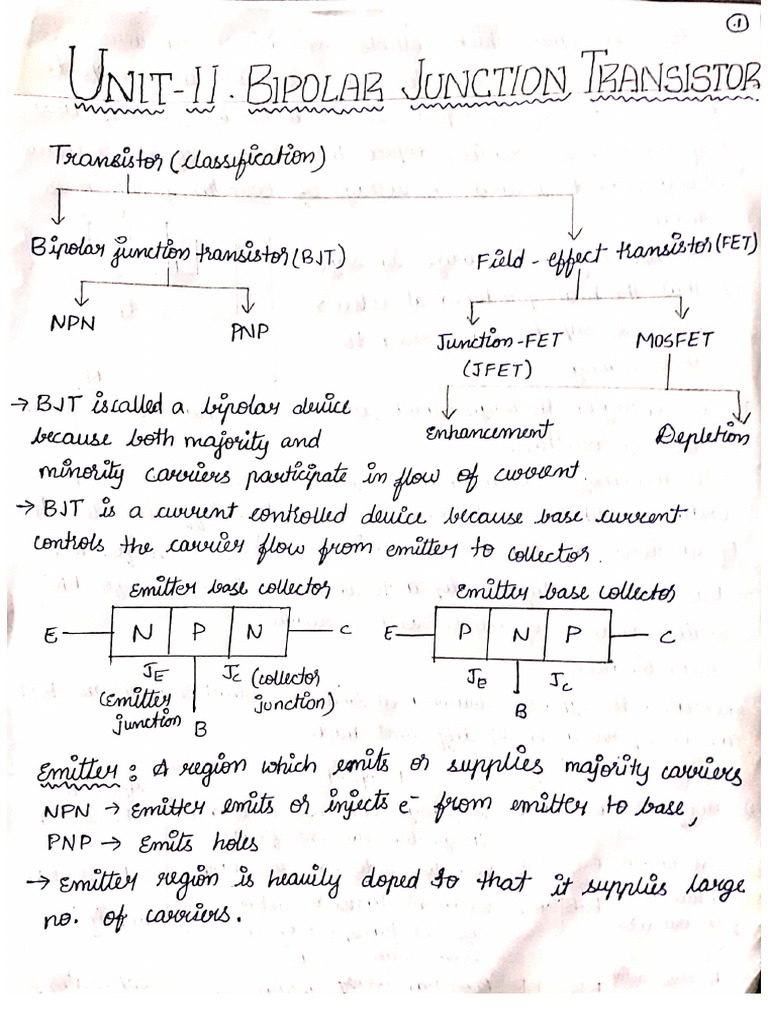 .1
UNIT-II. BIPOLAR JUNCTION TRANSISTOR
Transistor (classification)
Bipolar junction transistor (BJT)
Field-effect transistor (FET)
NPN
PNP
Junction-FET
(JFET)
MOSFET
Enhancement
Depletion
→ BJT is called a bipolar device
because both majority and
minority carriers participate in flow of current.
→ BJT is a current controlled device because base current
controls the carrier flow from emitter to collector.
Emitter base collector
E N P N C
JE
(Emitter
junction
JC (collector
junction)
B
Emitter base collector
E P N P C
JE
JC
B
Emitter : A region which emits or supplies majority carriers
NPN → Emitter emits or injects e⁻ from emitter to base,
PNP → Emits holes
→ Emitter region is heavily doped so that it supplies large
no. of carriers.